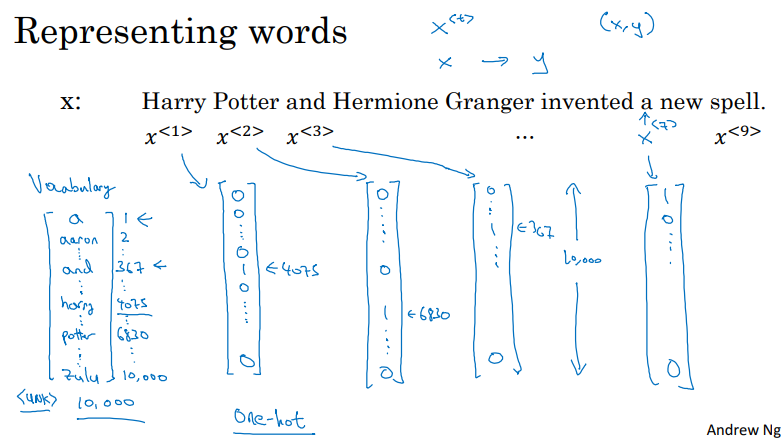 Representing words
x<t> (x,y)
x → y
x: Harry Potter and Hermione Granger invented a new spell.
x<1> x<2> x<3> ... x<7> x<9>
Vocabulary
a 1 ←
aaron 2
and 367 ←
harry 4075
potter 6830
zulu 10,000
<UNK> 10,000
0 0 0 1 0 0 ←4075
0 0 1 0 ←6830
0 1 0 ←367
10,000
1 0 0
One-hot
Andrew Ng